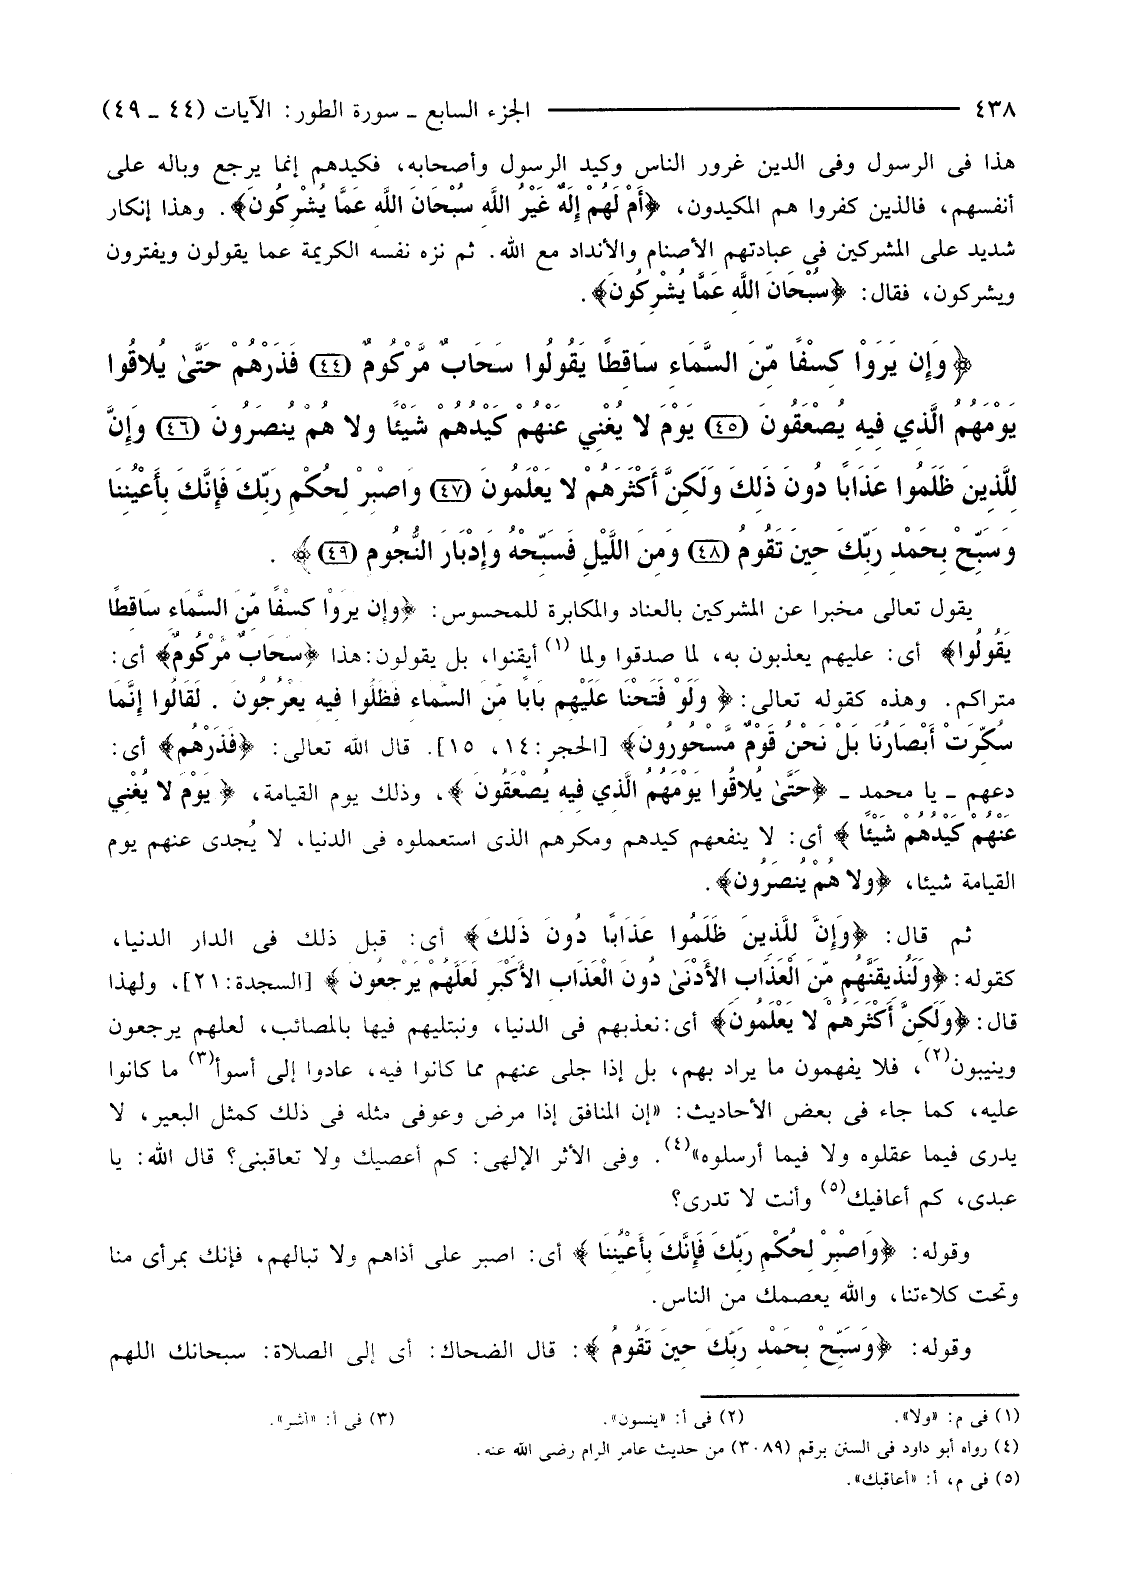 ٤٣٨ ـــــــــــــــــ الجزء السابع ـ سورة الطور: الآيات (٤٤ ـ ٤٩)
هذا فى الرسول وفى الدين غرور الناس وكيد الرسول وأصحابه، فكيدهم إنما يرجع وباله على
أنفسهم، فالذين كفروا هم المكيدون، ﴿أَمْ لَهُمْ إِلَهٌ غَيْرُ اللَّهِ سُبْحَانَ اللَّهِ عَمَّا يُشْرِكُونَ﴾. وهذا إنكار
شديد على المشركين فى عبادتهم الأصنام والأنداد مع الله. ثم نزه نفسه الكريمة عما يقولون ويفترون
ويشركون، فقال: ﴿سُبْحَانَ اللَّهِ عَمَّا يُشْرِكُونَ﴾.
﴿وَإِن يَرَوْا كِسْفًا مِّنَ السَّمَاءِ سَاقِطًا يَقُولُوا سَحَابٌ مَّرْكُومٌ (٤٤) فَذَرْهُمْ حَتَّىٰ يُلاقُوا
يَوْمَهُمُ الَّذِي فِيهِ يُصْعَقُونَ (٤٥) يَوْمَ لا يُغْنِي عَنْهُمْ كَيْدُهُمْ شَيْئًا وَلا هُمْ يُنصَرُونَ (٤٦) وَإِنَّ
لِلَّذِينَ ظَلَمُوا عَذَابًا دُونَ ذَلِكَ وَلَكِنَّ أَكْثَرَهُمْ لا يَعْلَمُونَ (٤٧) وَاصْبِرْ لِحُكْمِ رَبِّكَ فَإِنَّكَ بِأَعْيُنِنَا
وَسَبِّحْ بِحَمْدِ رَبِّكَ حِينَ تَقُومُ (٤٨) وَمِنَ اللَّيْلِ فَسَبِّحْهُ وَإِدْبَارَ النُّجُومِ (٤٩)﴾.
يقول تعالى مخبرا عن المشركين بالعناد والمكابرة للمحسوس: ﴿وَإِن يَرَوْا كِسْفًا مِّنَ السَّمَاءِ سَاقِطًا
يَقُولُوا﴾ أى: عليهم يعذبون به، لما صدقوا ولما (١) أيقنوا، بل يقولون: هذا ﴿سَحَابٌ مَّرْكُومٌ﴾ أى:
متراكم. وهذه كقوله تعالى: ﴿ وَلَوْ فَتَحْنَا عَلَيْهِم بَابًا مِّنَ السَّمَاءِ فَظَلُّوا فِيهِ يَعْرُجُونَ . لَقَالُوا إِنَّمَا
سُكِّرَتْ أَبْصَارُنَا بَلْ نَحْنُ قَوْمٌ مَّسْحُورُونَ﴾ [الحجر: ١٤، ١٥]. قال الله تعالى: ﴿فَذَرْهُمْ﴾ أى:
دعهم ـ يا محمد ـ ﴿حَتَّىٰ يُلاقُوا يَوْمَهُمُ الَّذِي فِيهِ يُصْعَقُونَ ﴾، وذلك يوم القيامة، ﴿ يَوْمَ لا يُغْنِي
عَنْهُمْ كَيْدُهُمْ شَيْئًا ﴾ أى: لا ينفعهم كيدهم ومكرهم الذى استعملوه فى الدنيا، لا يُجدى عنهم يوم
القيامة شيئا، ﴿وَلا هُمْ يُنصَرُونَ﴾.
ثم قال: ﴿وَإِنَّ لِلَّذِينَ ظَلَمُوا عَذَابًا دُونَ ذَلِكَ﴾ أى: قبل ذلك فى الدار الدنيا،
كقوله: ﴿وَلَنُذِيقَنَّهُم مِّنَ الْعَذَابِ الأَدْنَىٰ دُونَ الْعَذَابِ الأَكْبَرِ لَعَلَّهُمْ يَرْجِعُونَ ﴾ [السجدة: ٢١]، ولهذا
قال: ﴿وَلَكِنَّ أَكْثَرَهُمْ لا يَعْلَمُونَ﴾ أى: نعذبهم فى الدنيا، ونبتليهم فيها بالمصائب، لعلهم يرجعون
وينيبون(٢)، فلا يفهمون ما يراد بهم، بل إذا جلى عنهم مما كانوا فيه، عادوا إلى أسوأ(٣) ما كانوا
عليه، كما جاء فى بعض الأحاديث: «إن المنافق إذا مرض وعوفى مثله فى ذلك كمثل البعير، لا
يدرى فيما عقلوه ولا فيما أرسلوه»(٤). وفى الأثر الإلهى: كم أعصيك ولا تعاقبنى؟ قال الله: يا
عبدى، كم أعافيك(٥) وأنت لا تدرى؟
وقوله: ﴿وَاصْبِرْ لِحُكْمِ رَبِّكَ فَإِنَّكَ بِأَعْيُنِنَا ﴾ أى: اصبر على أذاهم ولا تبالهم، فإنك بمرأى منا
وتحت كلاءتنا، والله يعصمك من الناس.
وقوله: ﴿وَسَبِّحْ بِحَمْدِ رَبِّكَ حِينَ تَقُومُ ﴾: قال الضحاك: أى إلى الصلاة: سبحانك اللهم
(١) فى م: «ولا». (٢) فى أ: «ينسون». (٣) فى أ: «أشر».
(٤) رواه أبو داود فى السنن برقم (٣٠٨٩) من حديث عامر الرام رضى الله عنه.
(٥) فى م، أ: «أعاقبك».